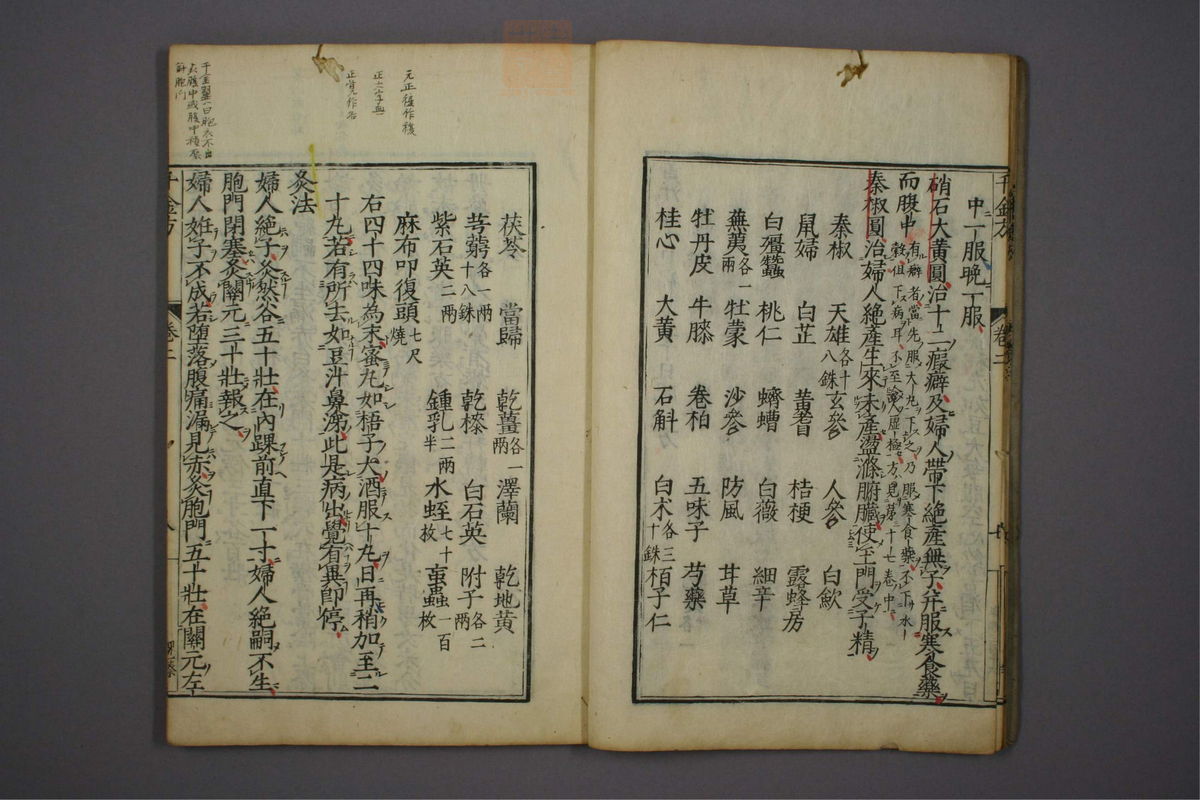 中一服晚一服
硝石大黃圓治十二瘕癖及婦人帶下絶産無子并服寒食藥
而腹中有癖者當先服大丸下之乃服寒食藥不下水
穀但下病耳不至虚極方見第十七卷中
秦椒圓治婦人絶產生來未產盪滌腑臟使玉門受子精
秦椒 天雄各十八銖 玄參 人參 白歛
鼠婦 白芷 黄耆 桔梗 露蜂房
白殭蠶 桃仁 蠐螬 白薇 細辛
蕪荑各一兩 牡蒙 沙參 防風 甘草
牡丹皮 牛膝 卷柏 五味子 芍藥
桂心 大黄 石斛 白朮各三十銖 栢子仁
茯苓 當歸 乾薑各一兩 澤蘭 乾地黄
芎藭各一兩十八銖 乾椽 白石英 附子各二兩
紫石英二兩 鍾乳二兩半 水蛭七十枚 䖟蟲一百枚
麻布叩復頭七尺燒
右四十四味為末蜜丸如梧子大酒服十丸日再稍加至二
十丸若有所去如豆汁鼻涕此是病出覺有異即停
灸法
婦人絶子灸然谷五十壯在內踝前直下一寸婦人絶嗣不生
胞門閉塞灸關元三十壯報之
婦人姙子不成若墮落腹痛漏見赤灸胞門五十壯在關元左
千金方 卷二
元正椽作椓
正六字無
正覺作若
千金翼一曰胞衣不出